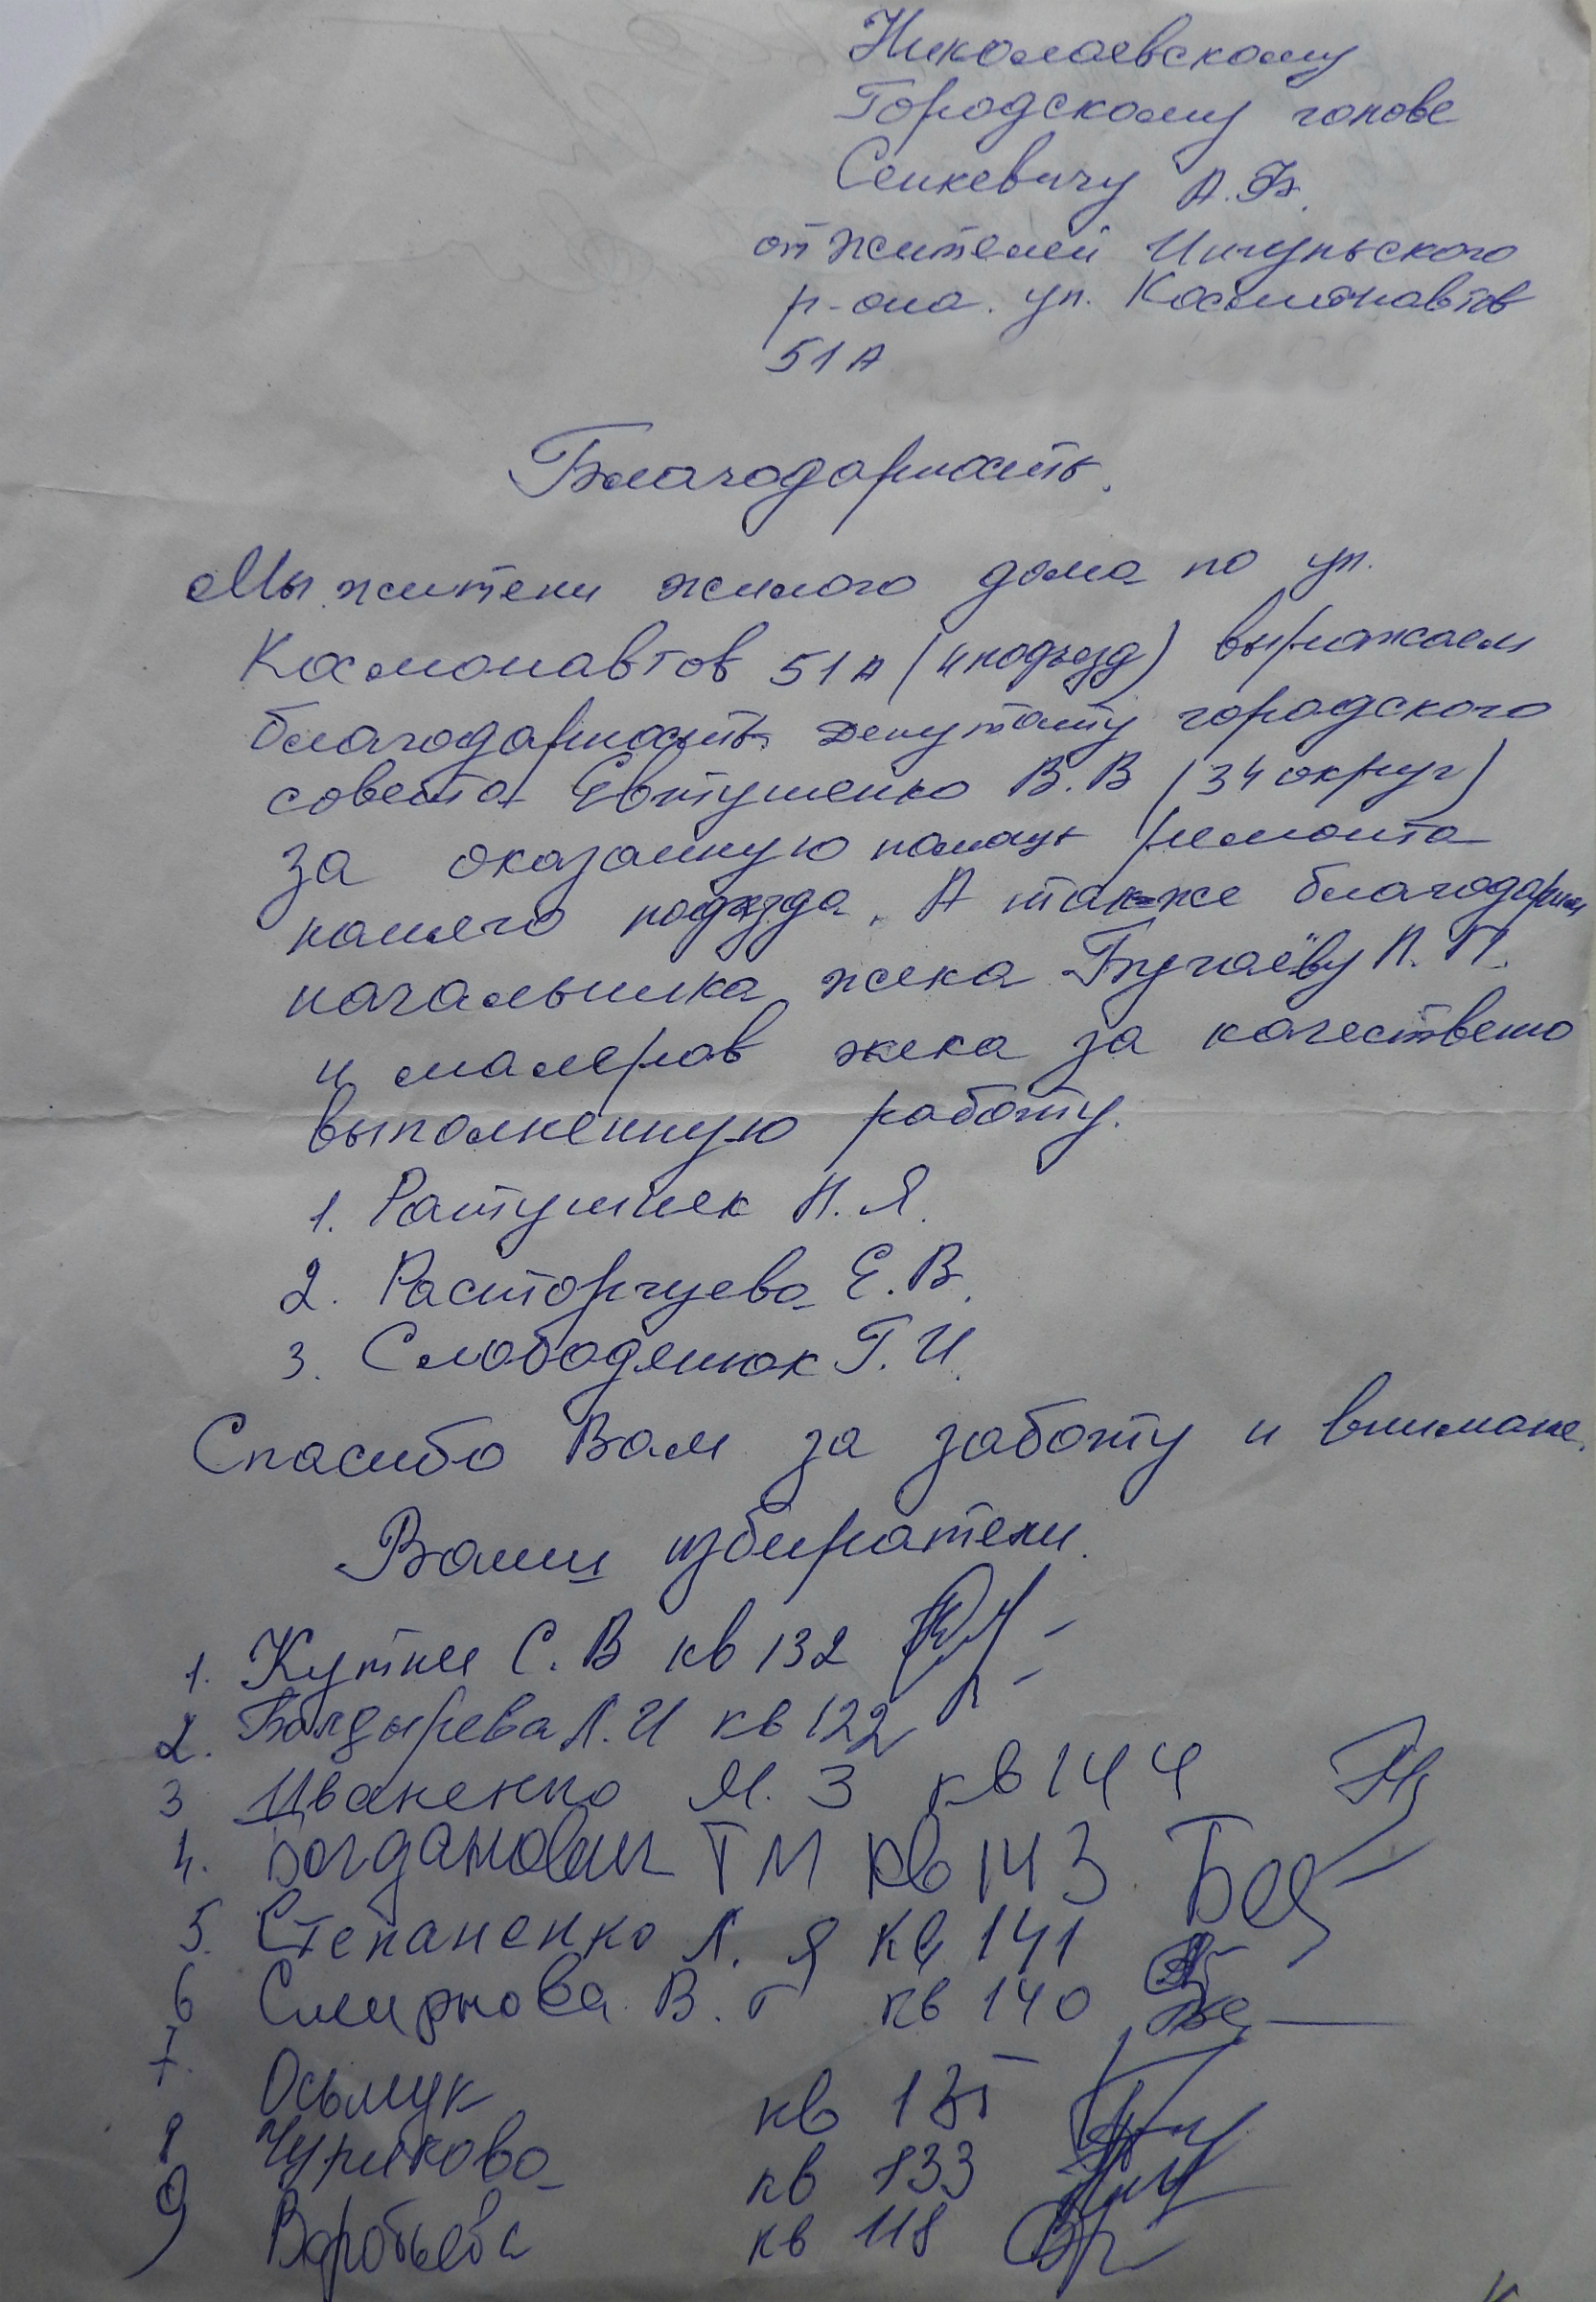 Николаевскому
Городскому голове
Сенкевичу А.Ф.
от жителей Ингульского
р-она. ул. Космонавтов
51 А
Благодарность.
Мы жители жилого дома по ул.
Космонавтов 51 А (4 подъезд) выражаем
благодарность депутату городского
совета Евтушенко В.В (34 округ)
за оказанную помощь ремонта
нашего подъезда. А так-же благодарим
начальника жека Бугаёву Л.П.
и маляров жека за качествено
выполненную работу.
1. Ратушняк Н.Я.
2. Расторгуева Е.В.
3. Слободянюк Г.И.
Спасибо Вам за заботу и внимание.
Ваши избиратели.
1. С.В кв 132
2. Болдырева Л.И кв 122
3 Иваненко М.З кв 144
4. Богданович ТМ кв 143
5. Степаненко Л.Я кв 141
6 Смирнова В.Г кв 140
7. Осьмук кв 135
8 Чурикова кв 133
9 Воробьева кв 118